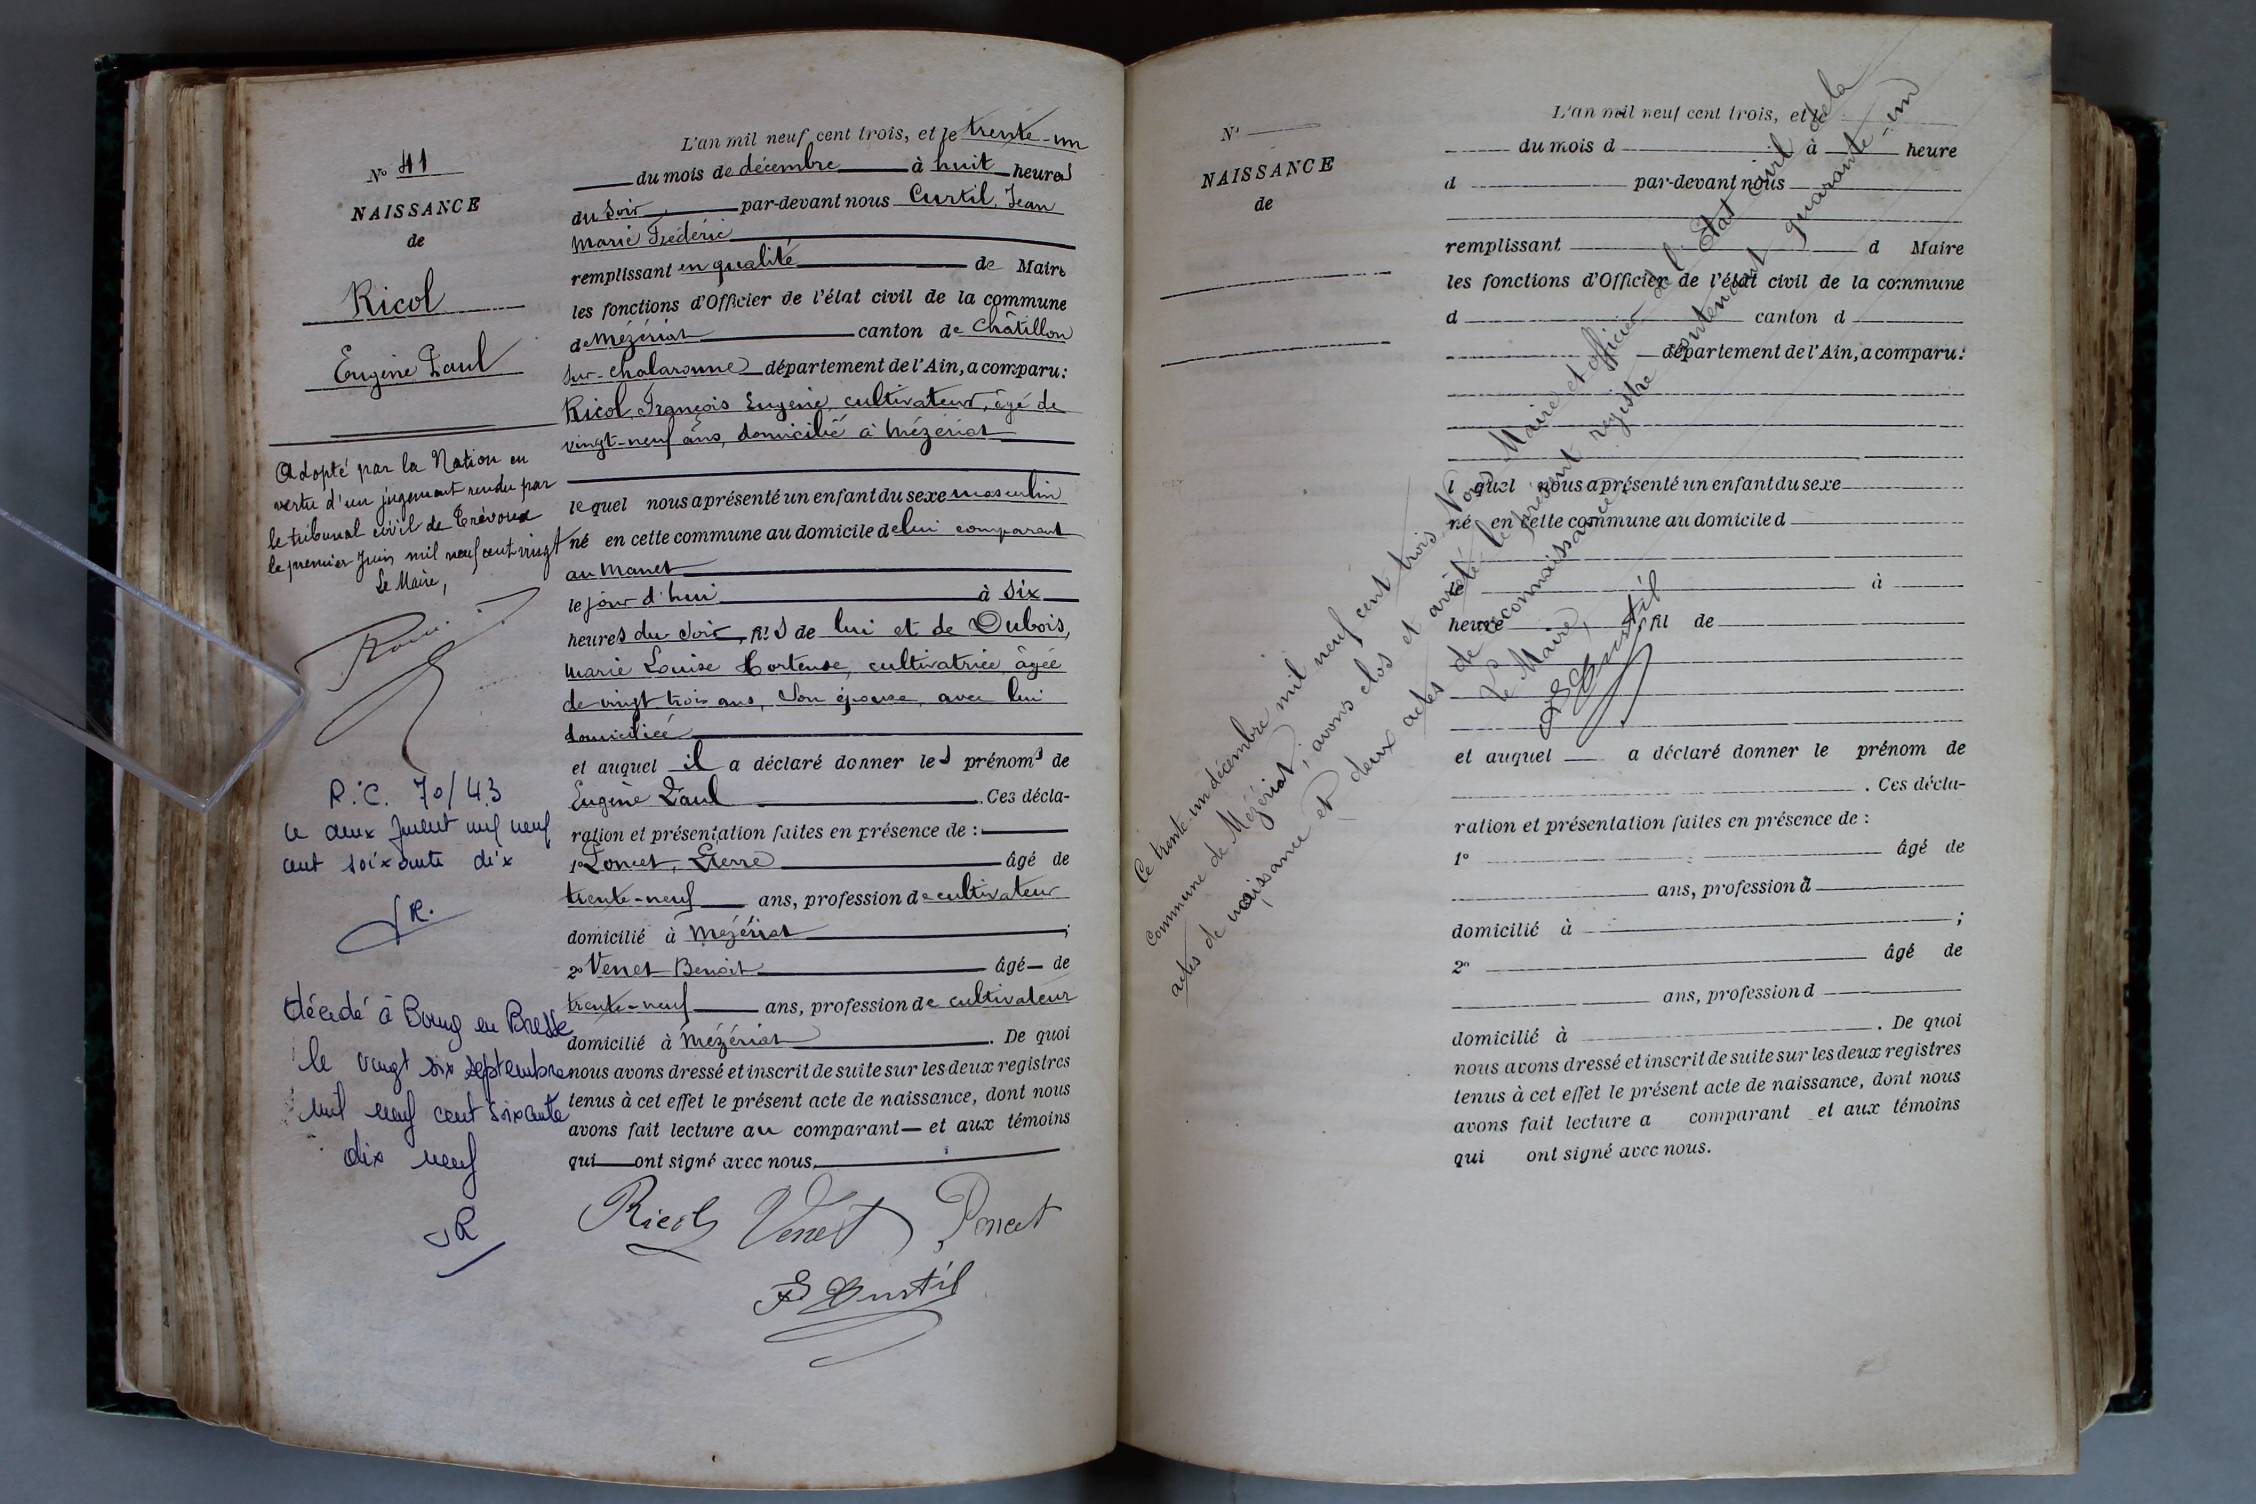 N° 41
NAISSANCE
de
Ricol
Eugène Paul
Adopté par la Nation en
vertu d'un jugement rendu par
le tribunal civil de Trévoux
le premier Juin mil neuf cent vingt
Le Maire,
R.C. 70/43
ce deux juillet mil neuf
cent soixante dix
JR.
décédé à Bourg en Bresse
le vingt six septembre
mil neuf cent soixante
dix neuf
JR
L'an mil neuf cent trois, et le trente-un
du mois de décembre à huit heures
du soir par-devant nous Curtil, Jean
Marie Frédéric
remplissant en qualité de Maire
les fonctions d'Officier de l'état civil de la commune
de Mézériat canton de Châtillon
sur-Chalaronne département de l'Ain, a comparu:
Ricol, François Eugène, cultivateur, âgé de
vingt-neuf ans, domicilié à Mézériat
lequel nous a présenté un enfant du sexe masculin
né en cette commune au domicile de lui comparant
au Manet
le jour d'hui à six
heures du soir, fils de lui et de Dubois,
Marie Louise Hortense, cultivatrice, âgée
de vingt trois ans, son épouse, avec lui
domiciliée
et auquel il a déclaré donner les prénoms de
Eugène Paul. Ces décla-
ration et présentation faites en présence de :
1° Poncet, Pierre âgé de
trente-neuf ans, profession de cultivateur
domicilié à Mézériat ;
2° Venet Benoit âgé de
trente-neuf ans, profession de cultivateur
domicilié à Mézériat. De quoi
nous avons dressé et inscrit de suite sur les deux registres
tenus à cet effet le présent acte de naissance, dont nous
avons fait lecture au comparant et aux témoins
qui ont signé avec nous.
Ricol Venet Poncet
F Curtil
N°
NAISSANCE
de
L'an mil neuf cent trois, et le
du mois d à heure
d par-devant nous
remplissant d Maire
les fonctions d'Officier de l'état civil de la commune
d canton d
département de l'Ain, a comparu:
l quel nous a présenté un enfant du sexe
né en cette commune au domicile d
le à
heure fil de
et auquel a déclaré donner le prénom de
. Ces décla-
ration et présentation faites en présence de :
1° âgé de
ans, profession d
domicilié à ;
2° âgé de
ans, profession d
domicilié à . De quoi
nous avons dressé et inscrit de suite sur les deux registres
tenus à cet effet le présent acte de naissance, dont nous
avons fait lecture a comparant et aux témoins
qui ont signé avec nous.
Ce trente-un décembre mil neuf cent trois, Nous Maire et officier de l'État civil de la
commune de Mézériat, avons clos et arrêté le présent registre contenant quarante-un
actes de naissance et deux actes de reconnaissance.
Le Maire,
F Curtil